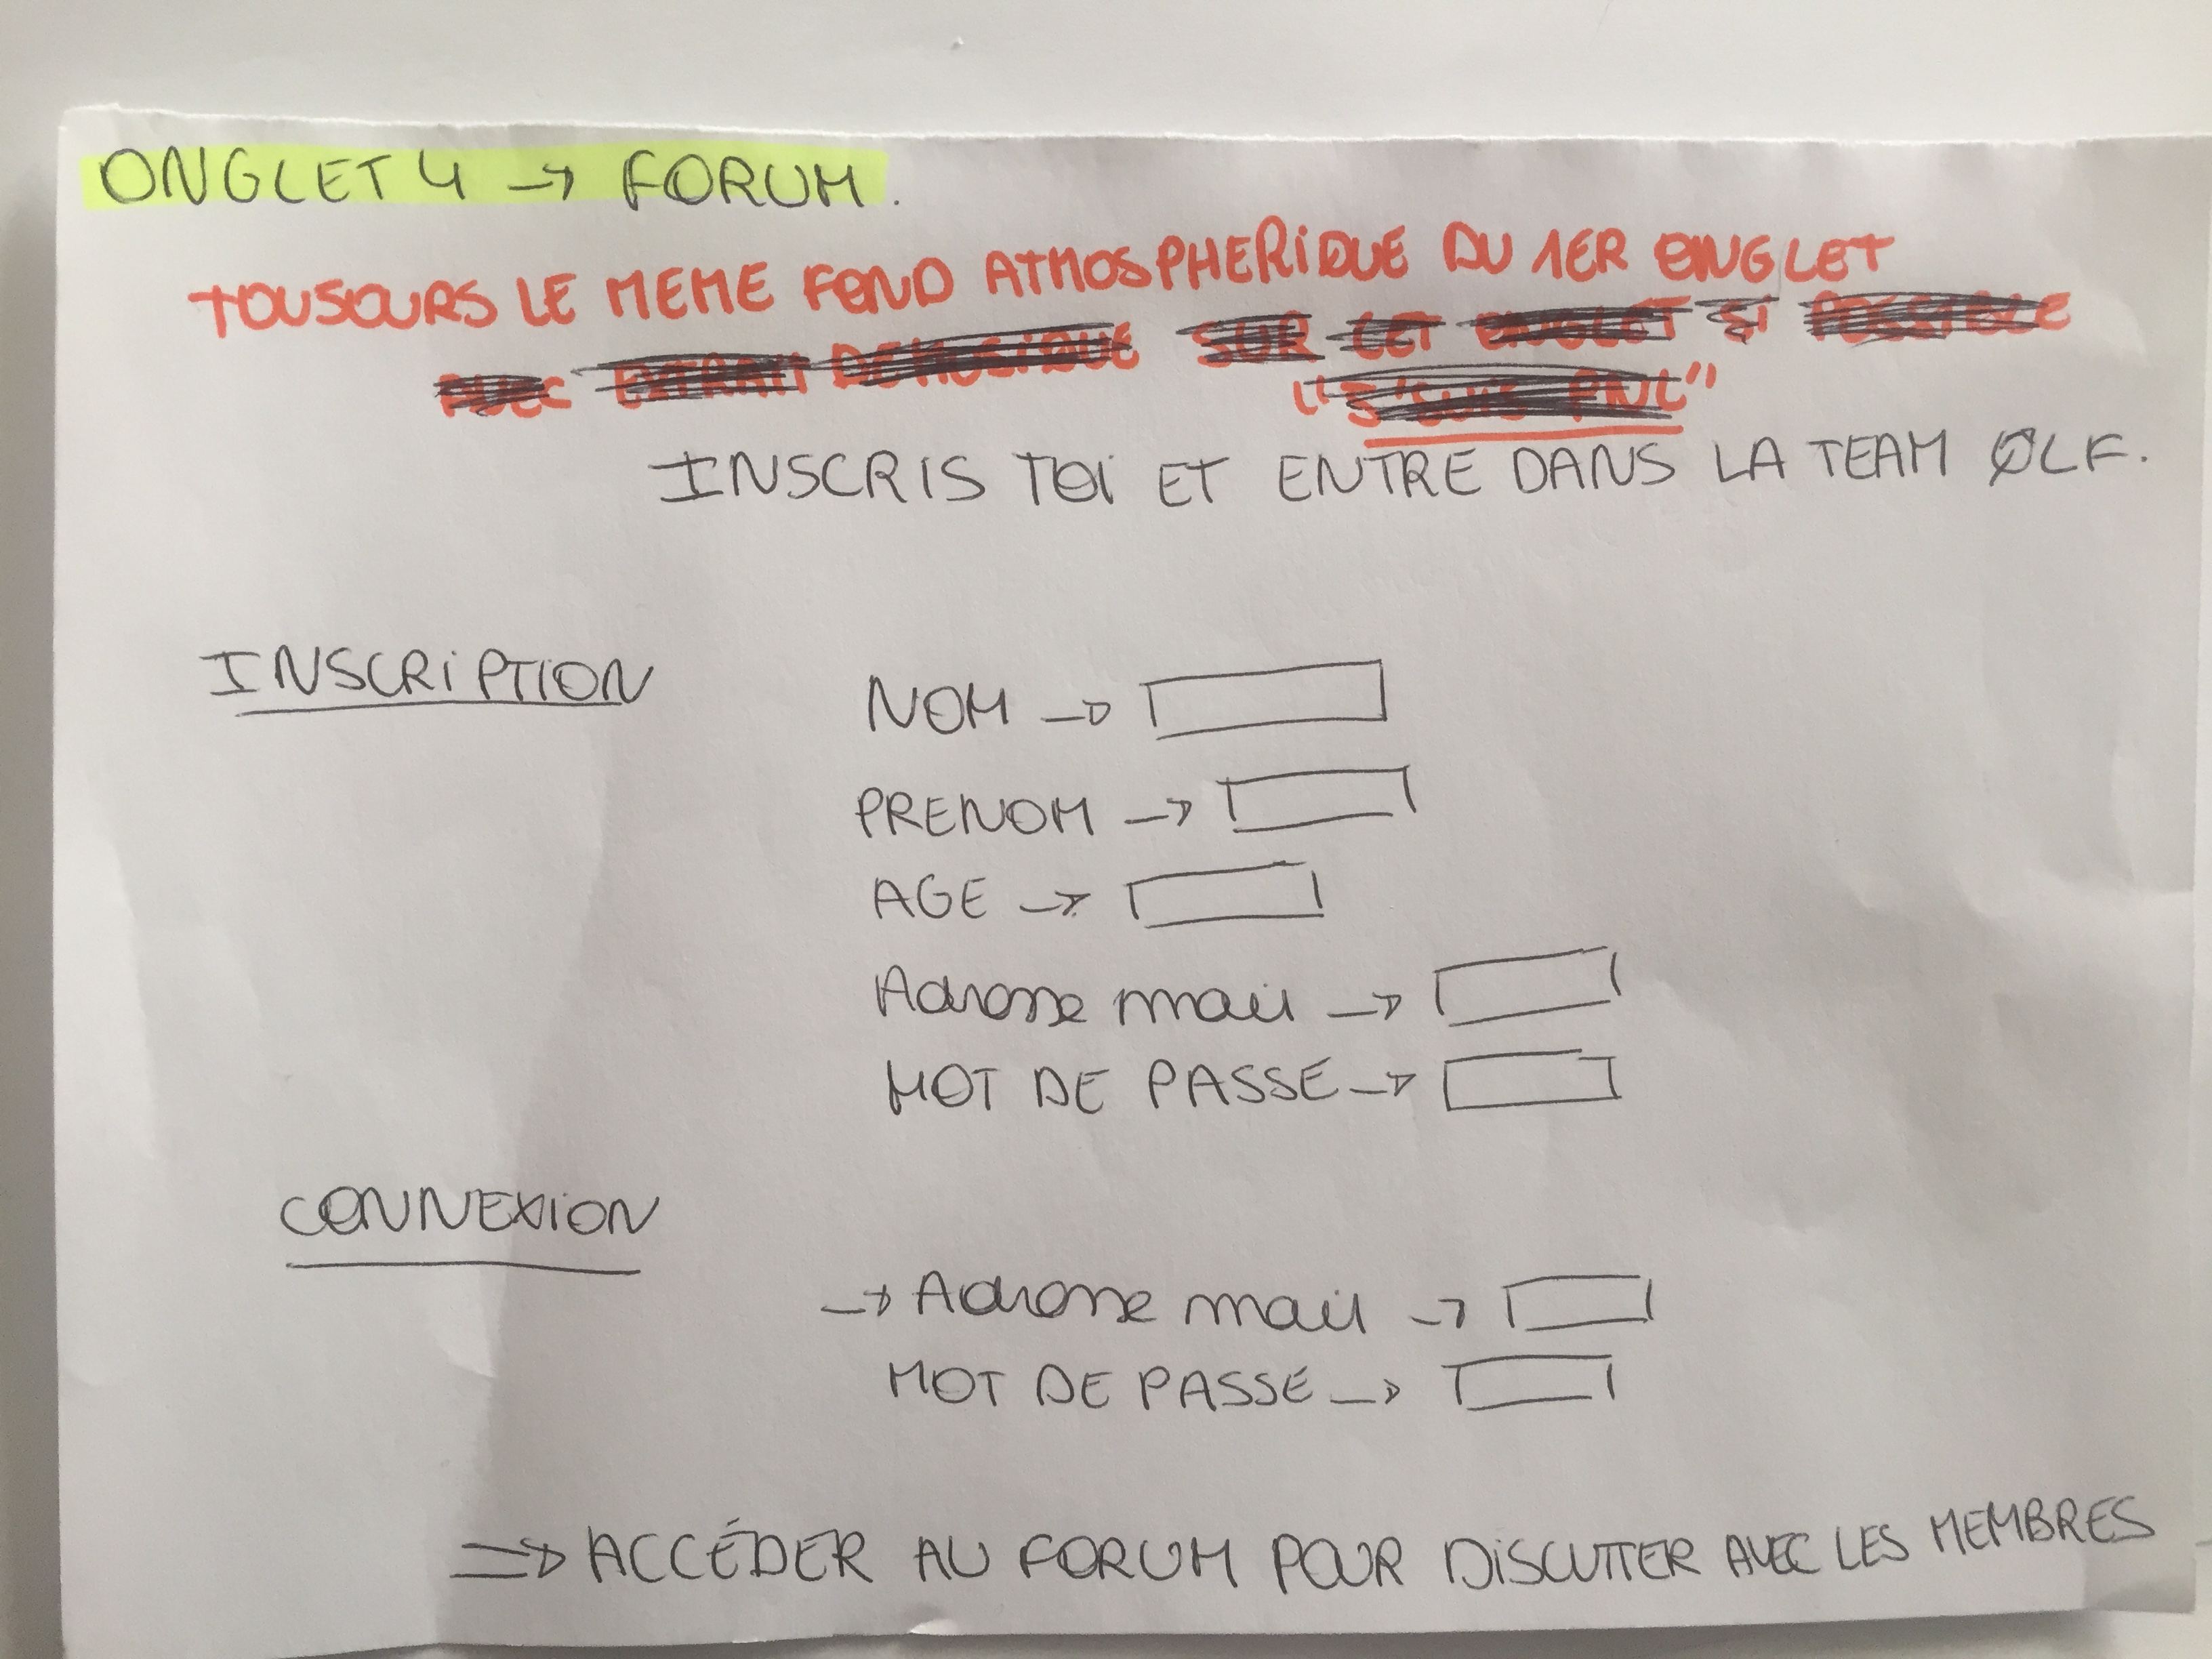 ONGLET 4 → FORUM.
TOUJOURS LE MEME FOND ATMOSPHERiQUE DU 1ER ONGLET
INSCRIS TOi ET ENTRE DANS LA TEAM ØLF.
INSCRiPTiON
NOM →
PRENOM →
AGE →
Adresse mail →
MOT DE PASSE →
CONNEXiON
→ Adresse mail →
MOT DE PASSE →
⇒ ACCÉDER AU FORUM POUR DiSCUTER AVEC LES MEMBRES